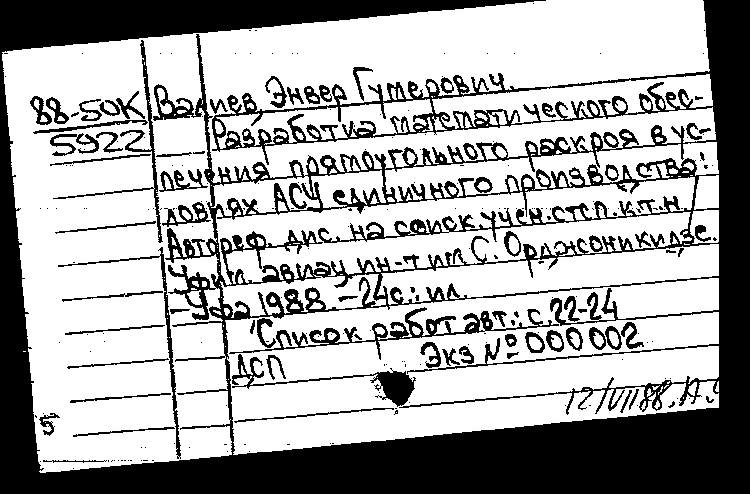 88-50К Валиев, Энвер Гумерович.
5922 Разработка математического обес-
печения прямоугольного раскроя в ус-
ловиях АСУ единичного производства:
Автореф. дис. на соиск. учен. степ. к.т.н./
Уфим. авиац. ин-т им. С. Орджоникидзе.
–Уфа, 1988.–24с.: ил.
Список работ авт.: с.22-24
ДСП Экз № 000002
12/VII 88.
5